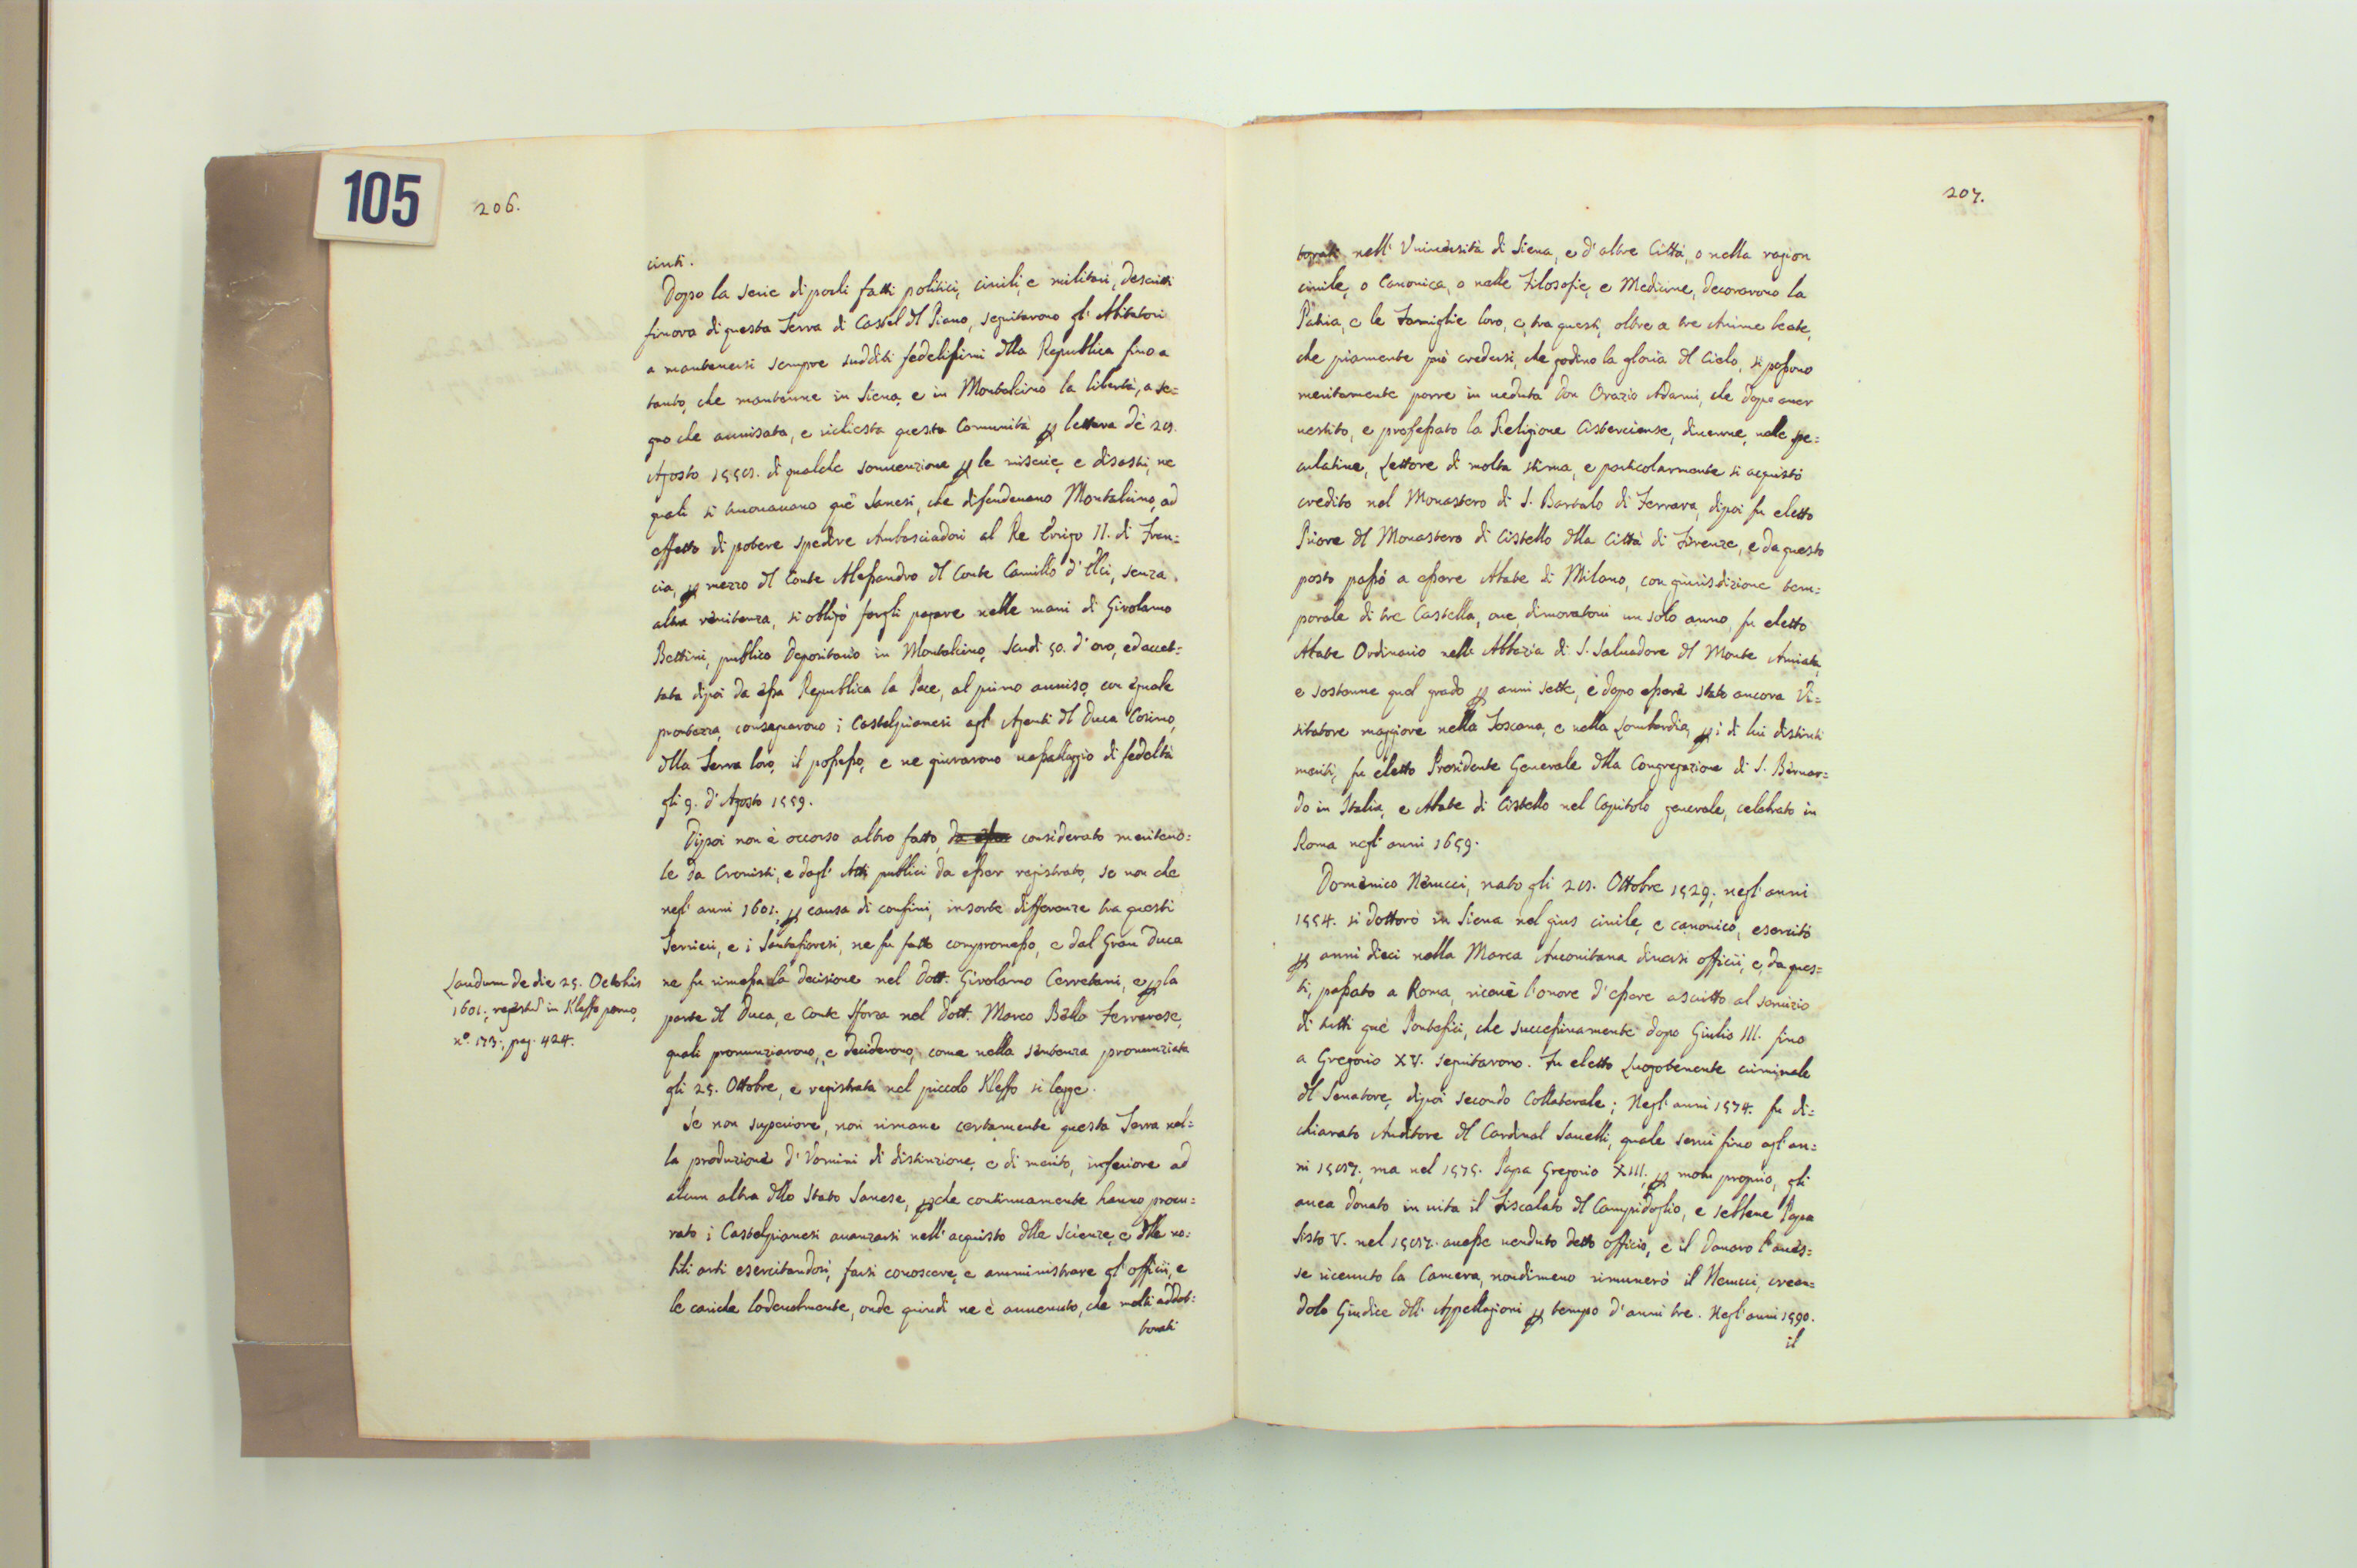 105
206.
cinti.
Dopo la serie di poch fatti politici, civili, e militari, descritti
finora di questa Terra di Castel del Piano, seguitarono gl' Abitatori
a mantenersi sempre sudditi fedelissimi della Republica fino a
tanto, che mantenne in Siena, e in Montalcino la libertà, a se=
gno che avvisata, e richiesta questa Comunità per lettera dè 28.
Agosto 1558. di qualche sovvenzione per le miserie, e disastri, ne
quali si trovavano què Sanesi, che difendevano Montalcino, ad
effetto di potere spedire Ambasciadori al Re Errigo II. di Fran=
cia, per mezzo del Conte Alessandro del Conte Camillo d' Elci, senza
altra renitenza, si obligò fargli pagare nelle mani di Girolamo
Bettini, publico Depositario in Montalcino, Scudi 50. d' oro, ed accet=
tata dipoi da essa Republica la Pace, al primo avviso, con eguale
prontezza, consegnarono i Castelpianesi agl' Agenti del Duca Cosimo,
della Terra loro, il possesso, e ne giurarono vassallaggio di fedeltà
gli 9. d' Agosto 1559.
Dipoi non è occorso altro fatto, considerato meritevo=
le da Cronisti, e dagl' Atti publici da esser registrato, se non che
negl' anni 1601. per causa di confini, insorte differenze tra questi
Terrieri, e i Santafioresi, ne fu fatto compromesso, e dal Gran Duca
ne fu rimessa la decisione nel Dott. Girolamo Cerretani, e per la
parte del Duca, e Conte Sforza nel Dott. Marco Bello Ferrarese,
quali pronunziarono, e deciderono, come nella sentenza pronunziata
gli 25. Ottobre, e registrata nel piccolo Kleffo si legge.
Laudum de die 25. Octobris
1601. registrd in Kleffo parvo,
n.° 173., pag. 424.
Se non superiore, non rimane certamente questa Terra nel=
la produzione d' Uomini di distinzione, e di merito, inferiore ad
alcun altra dello Stato Sanese, perche continuamente hanno procu=
rato i Castelpianesi avanzarsi nell' acquisto delle scienze, e delle no=
bili arti esercitandosi, farsi conoscere, e amministrare gl' officii, e
le cariche lodevolmente, onde quindi ne è avvenuto, che molti addot=
torati
207.
torati nell' Università di Siena, e d' altre Città, o nella ragion
civile, o Canonica, o nelle Filosofie, e Medicine, decorarono la
Patria, e le Famiglie loro, e tra questi, oltre a tre Anime beate,
che piamente può credersi, che godino la gloria del Cielo, si possono
meritamente porre in veduta Don Orazio Adami, che dopo aver
vestito, e professato la Religione Cisterciense, divenne, nelle spe=
culative, Lettore di molta stima, e particolarmente si acquistò
credito nel Monastero di S. Bartolo di Ferrara, dipoi fu eletto
Priore del Monastero di Cistello della Città di Firenze, e da questo
posto passò a essere Abate di Milano, con giurisdizione tem=
porale di tre Castella, ove, dimoratovi un solo anno, fu eletto
Abate Ordinario nell' Abbazia di S. Salvadore del Monte Amiata,
e sostenne quel grado per anni sette, e dopo essere stato ancora Vi=
sitatore maggiore nella Toscana, e nella Lombardia, per i di lui distinti
meriti, fu eletto Presidente Generale della Congregazione di S. Bernar=
do in Italia, e Abate di Cistello nel Capitolo generale, celebrato in
Roma negl' anni 1659.
Domenico Nerucci, nato gli 28. Ottobre 1529., negl' anni
1554. si dottorò in Siena nel gius civile, e canonico, esercitò
per anni dieci nella Marca Anconitana diversi officii, e, da ques=
ti, passato a Roma, ricevè l' onore d' essere ascritto al servizio
di tutti què Pontefici, che successivamente dopo Giulio III. fino
a Gregorio XV. seguitarono. Fu eletto Luogotenente criminale
del Senatore, dipoi secondo Collaterale; Negl' anni 1574. fu di=
chiarato Auditore del Cardinal Savelli, quale servì fino agl' an=
ni 1587., ma nel 1575. Papa Gregorio XIII., per motu proprio, gli
avea donato in vita il Fiscalato del Campidoglio, e sebbene Papa
Sisto V. nel 1587. avesse venduto detto officio, e il Danaro l' aves=
se ricevuto la Camera, nondimeno rimunerò il Nerucci, crean=
dolo Giudice dell' Appellagioni per tempo d' anni tre. Negl' anni 1590.
il